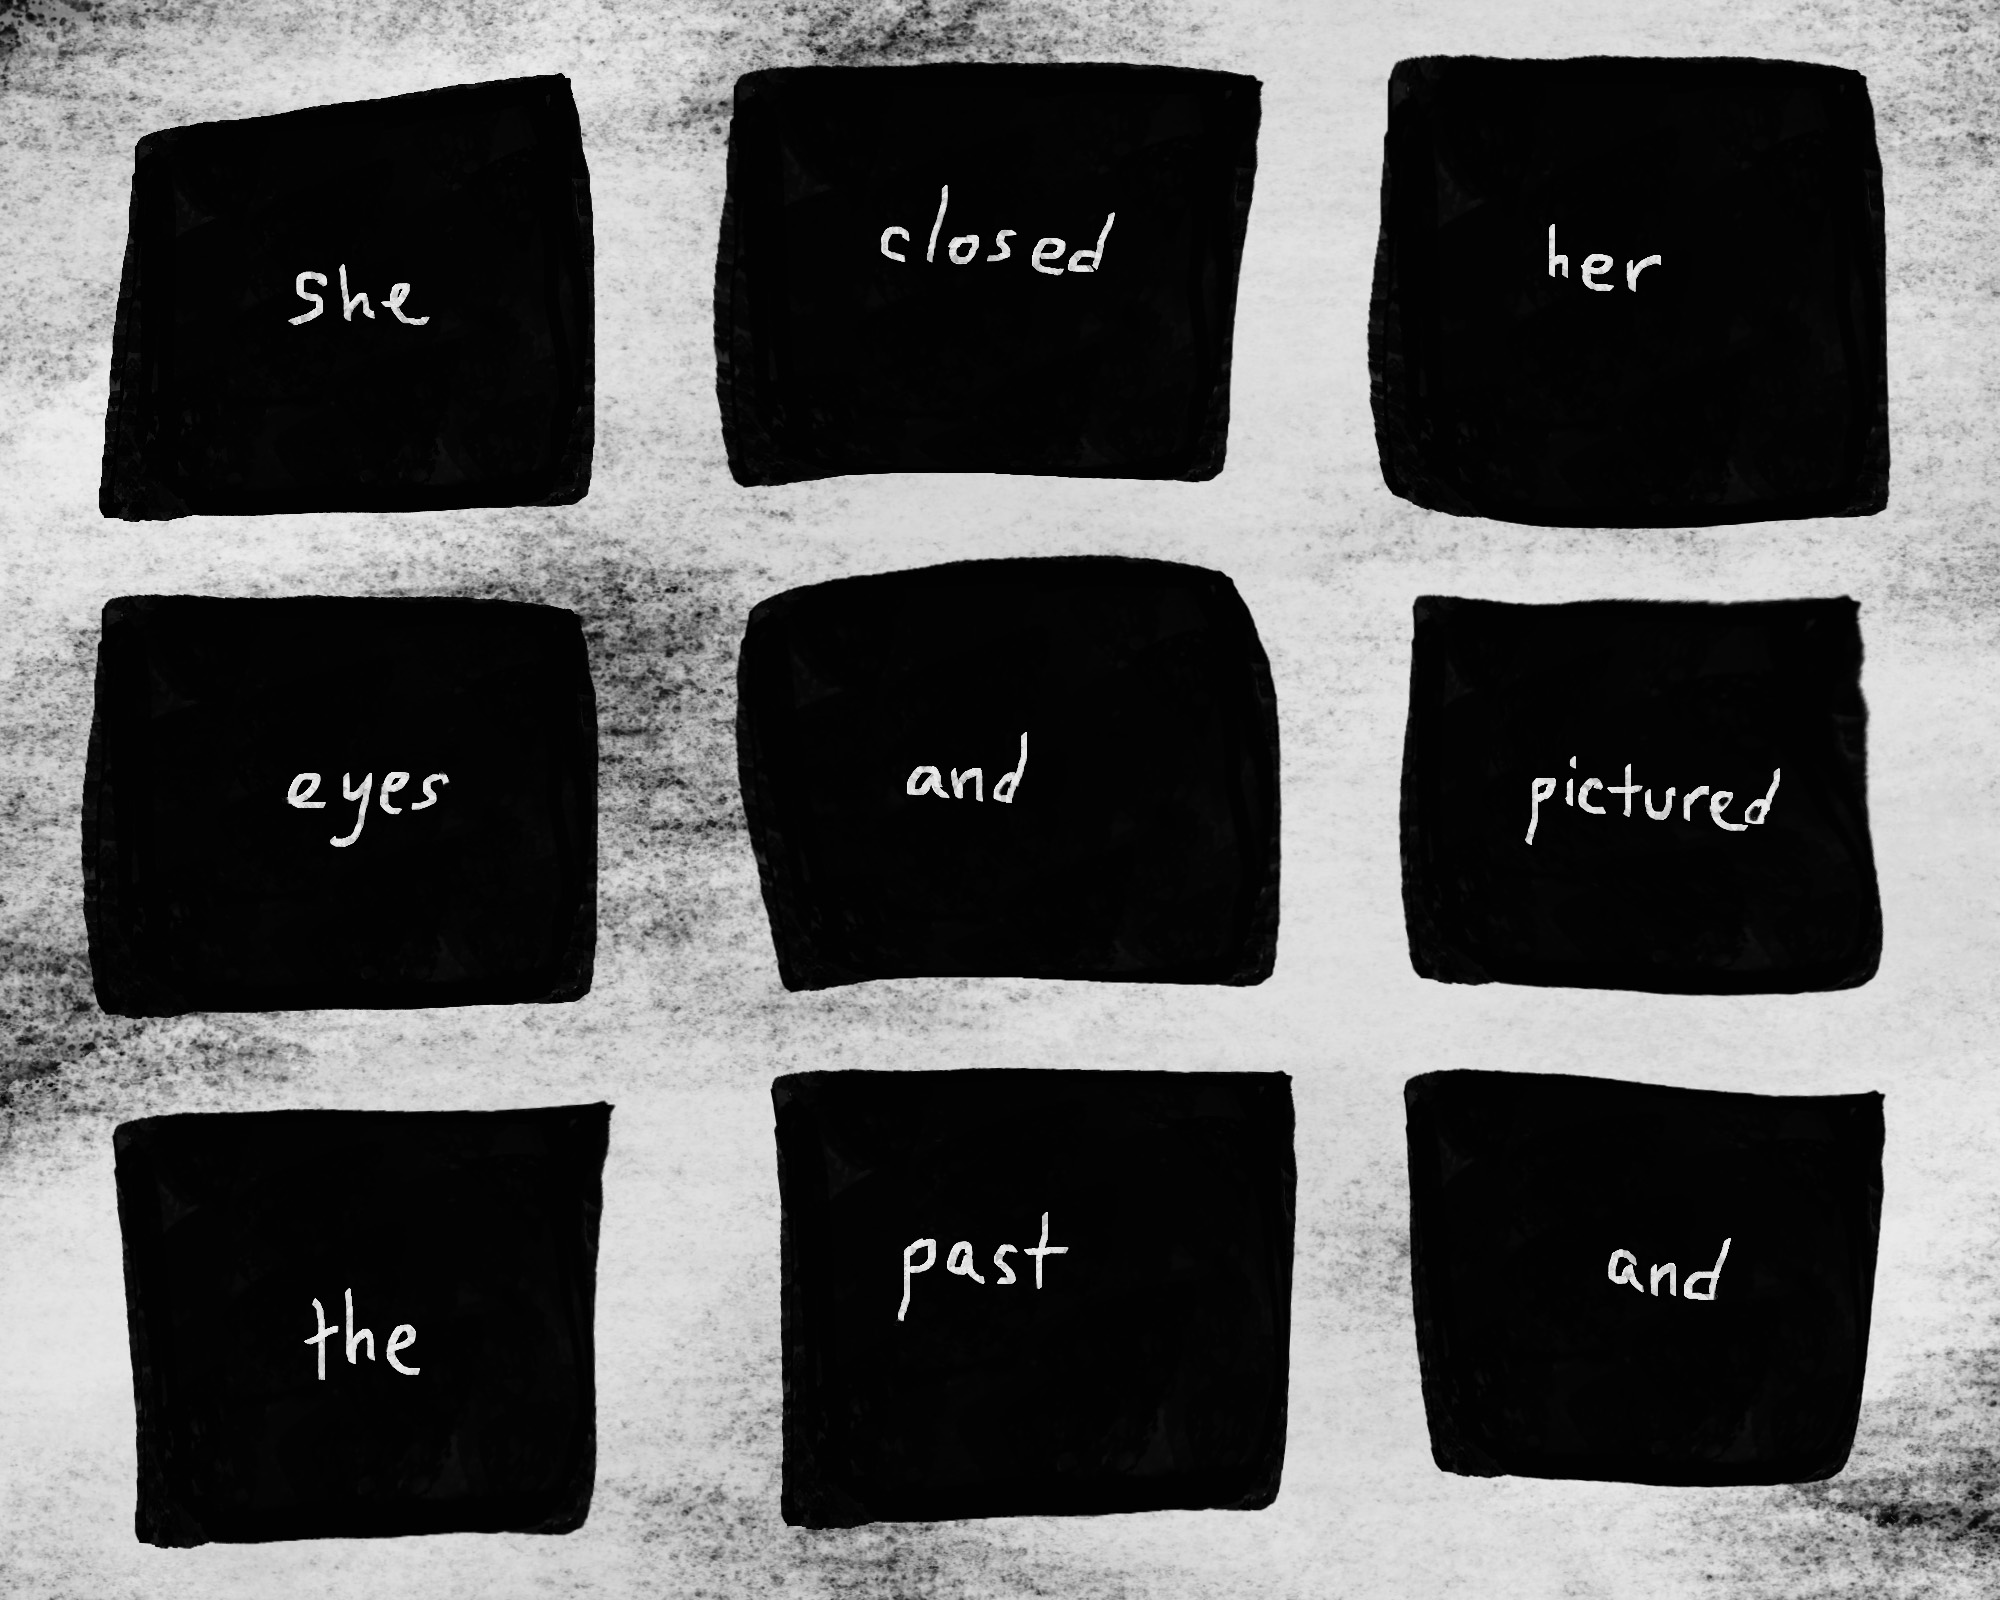 she closed her
eyes and pictured
the past and